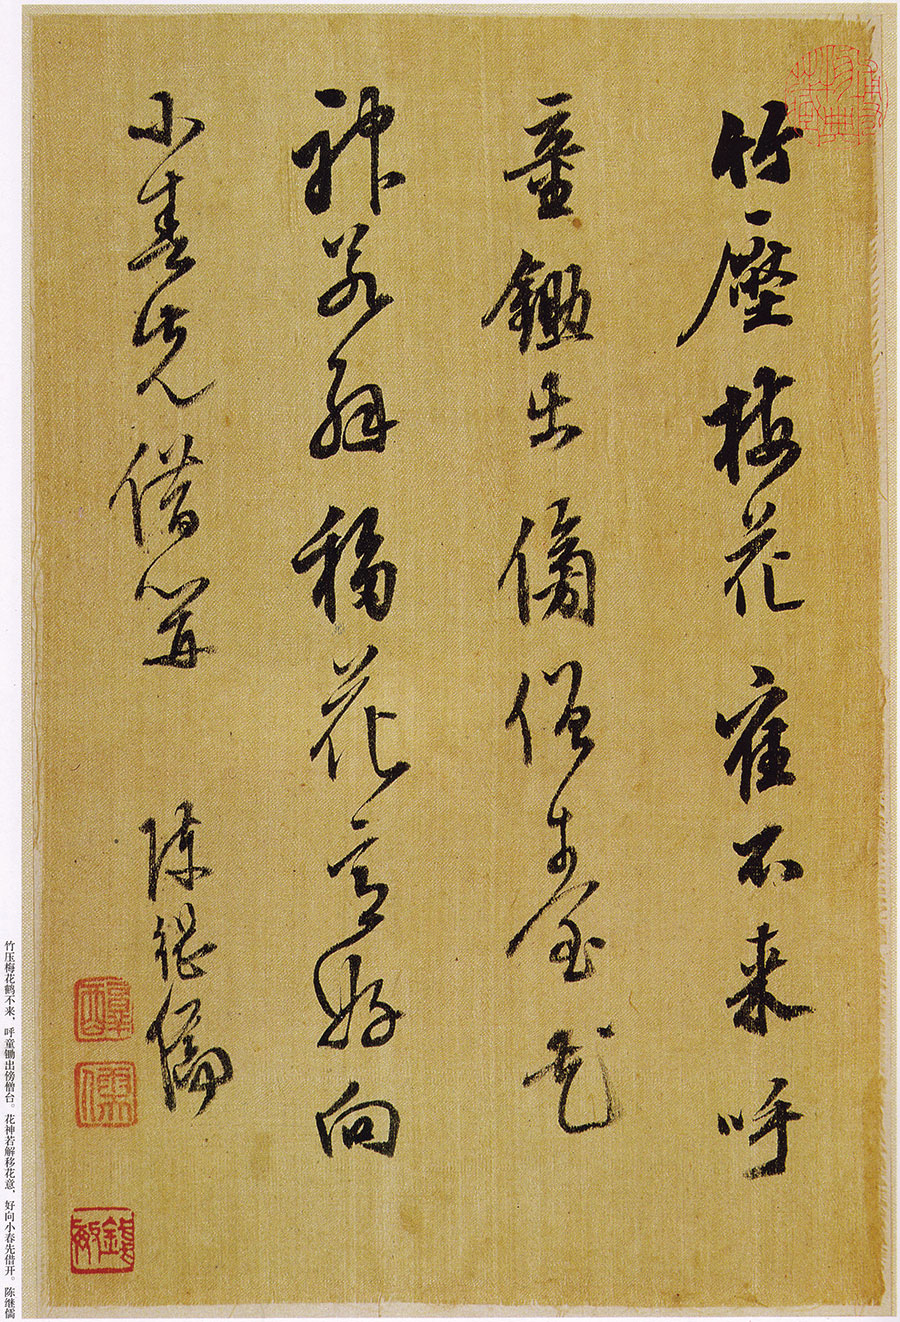 竹壓梅花寉不来呼
童鋤出傍僧臺花
神若解移花意好向
小春先借開 陳继儒
竹压梅花鹤不来，呼童锄出傍僧台。花神若解移花意，好向小春先借开。陈继儒